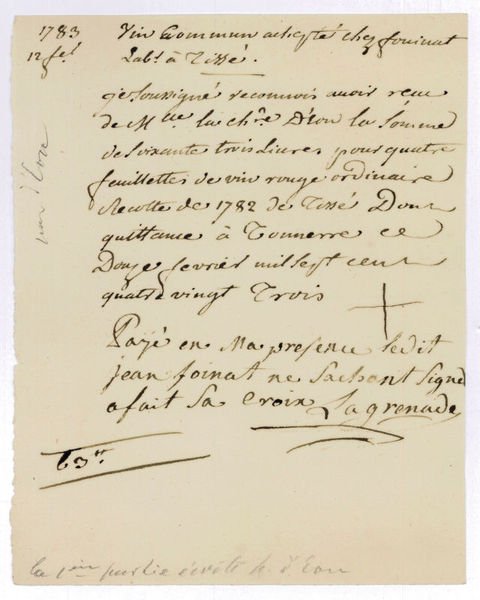 1783
12 fel
Vin Commun achepté chez fouinat
Labr. à Tissé.
je soussigné reconnois avoir recu
de Mlle la chre. Déon la somme
de soixante trois Livres pour quatre
feuillettes de vin rouge ordinaire
Recolte de 1782 de Tissé Dont
quittance à Tonnerre ce
Douze fevrier mil sept cent
quatre vingt Trois
Payé en Ma presence ledit
jean foinat ne sachant signé
a fait sa Croix Lagrenade
63tt
d'Eon
la 1ère partie écrite p. d'Eon